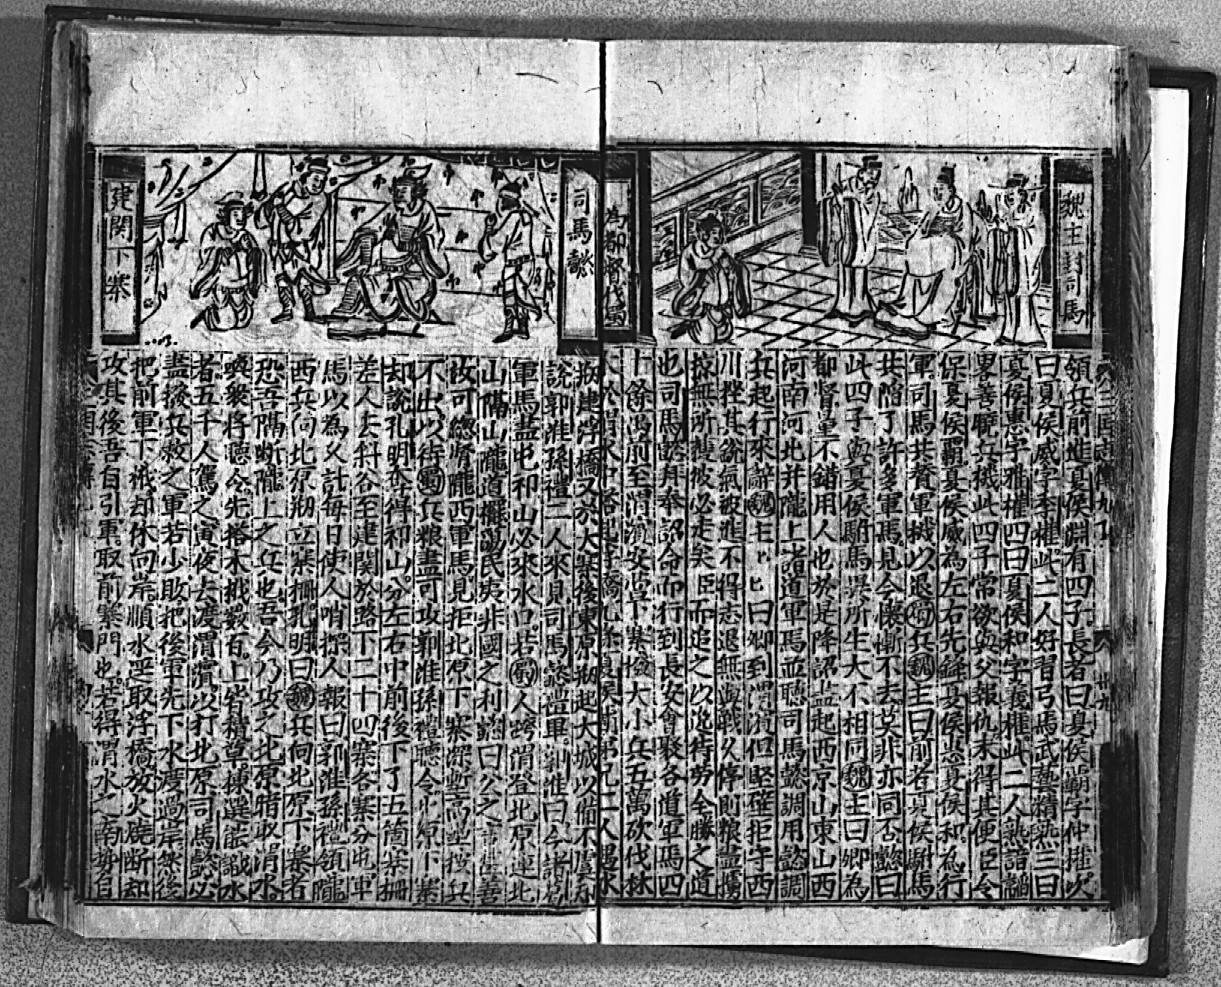 魏主封司馬
為都督伐蜀
領兵前進夏侯淵有四子長者曰夏侯霸字仲權次
曰夏侯威字季權此二人好習弓馬武藝精熟三曰
夏侯惠字雅權四曰夏侯和字義權此二人熟諳韜
畧善曉兵機此四子常欲與父報仇未得其便臣今
保夏侯霸夏侯威為左右先鋒夏侯惠夏侯和為行
軍司馬共贊軍機以退蜀兵魏主曰前者夏侯駙馬
共陷了許多軍馬見今懷慚不去莫非亦同否懿曰
此四子與夏侯駙馬異所生大不相同魏主曰卿為
都督量不錯用人也於是降詔盡起西京山東山西
河南河北并隴上諸道軍馬並聽司馬懿調用懿調
兵起行來辭魏主魏主曰卿到渭濱但堅壁拒守西
川挫其銳氣彼進不得志退無與戰久停則粮盡擄
掠無所護彼必走矣臣而追之以逸待勞全勝之道
也司馬懿拜奉詔命而行到長安會聚各道軍馬四
十餘萬前至渭濱安營下寨撥大小兵五萬砍伐林
木於渭水中搭起浮橋九条夏侯兄二人過水
司馬懿
建関下寨
剏建浮橋又於大寨後東原剏起大城以備不虞忽
說郭淮孫禮二人來見司馬懿禮畢郭淮曰今諸葛
軍馬盡屯祁山必來水口若蜀人跨渭登北原連北
山隔山隴道擺蕩氏夷非國之利懿曰公之言甚善
汝可總督隴西軍馬見拒北原下寨深塹高壘按兵
不出以待蜀兵粮盡可攻郭淮孫禮聽令北原下寨
却說孔明查得祁山分左右中前後下了五箇寨柵
差人去斜谷至建関於路下二十四寨各寨分屯軍
馬以為久計每日使人哨探人報曰郭淮孫禮領隴
西兵向北原剏立寨柵孔明曰魏兵向北原下寨者
恐吾隔断隴上之兵也吾今乃攻之北原暗取渭水
喚衆将聽令先搭木栰数百上皆積草揀選能識水
者五千人駕之寅夜去渡渭濱以打北原司馬懿必
盡後兵救之軍若少敗把後軍先下水渡過岸然後
把前軍下栰却休向岸順水逕取浮橋放火燒断却
攻其後吾自引軍取前寨門也若得渭水之南勢自